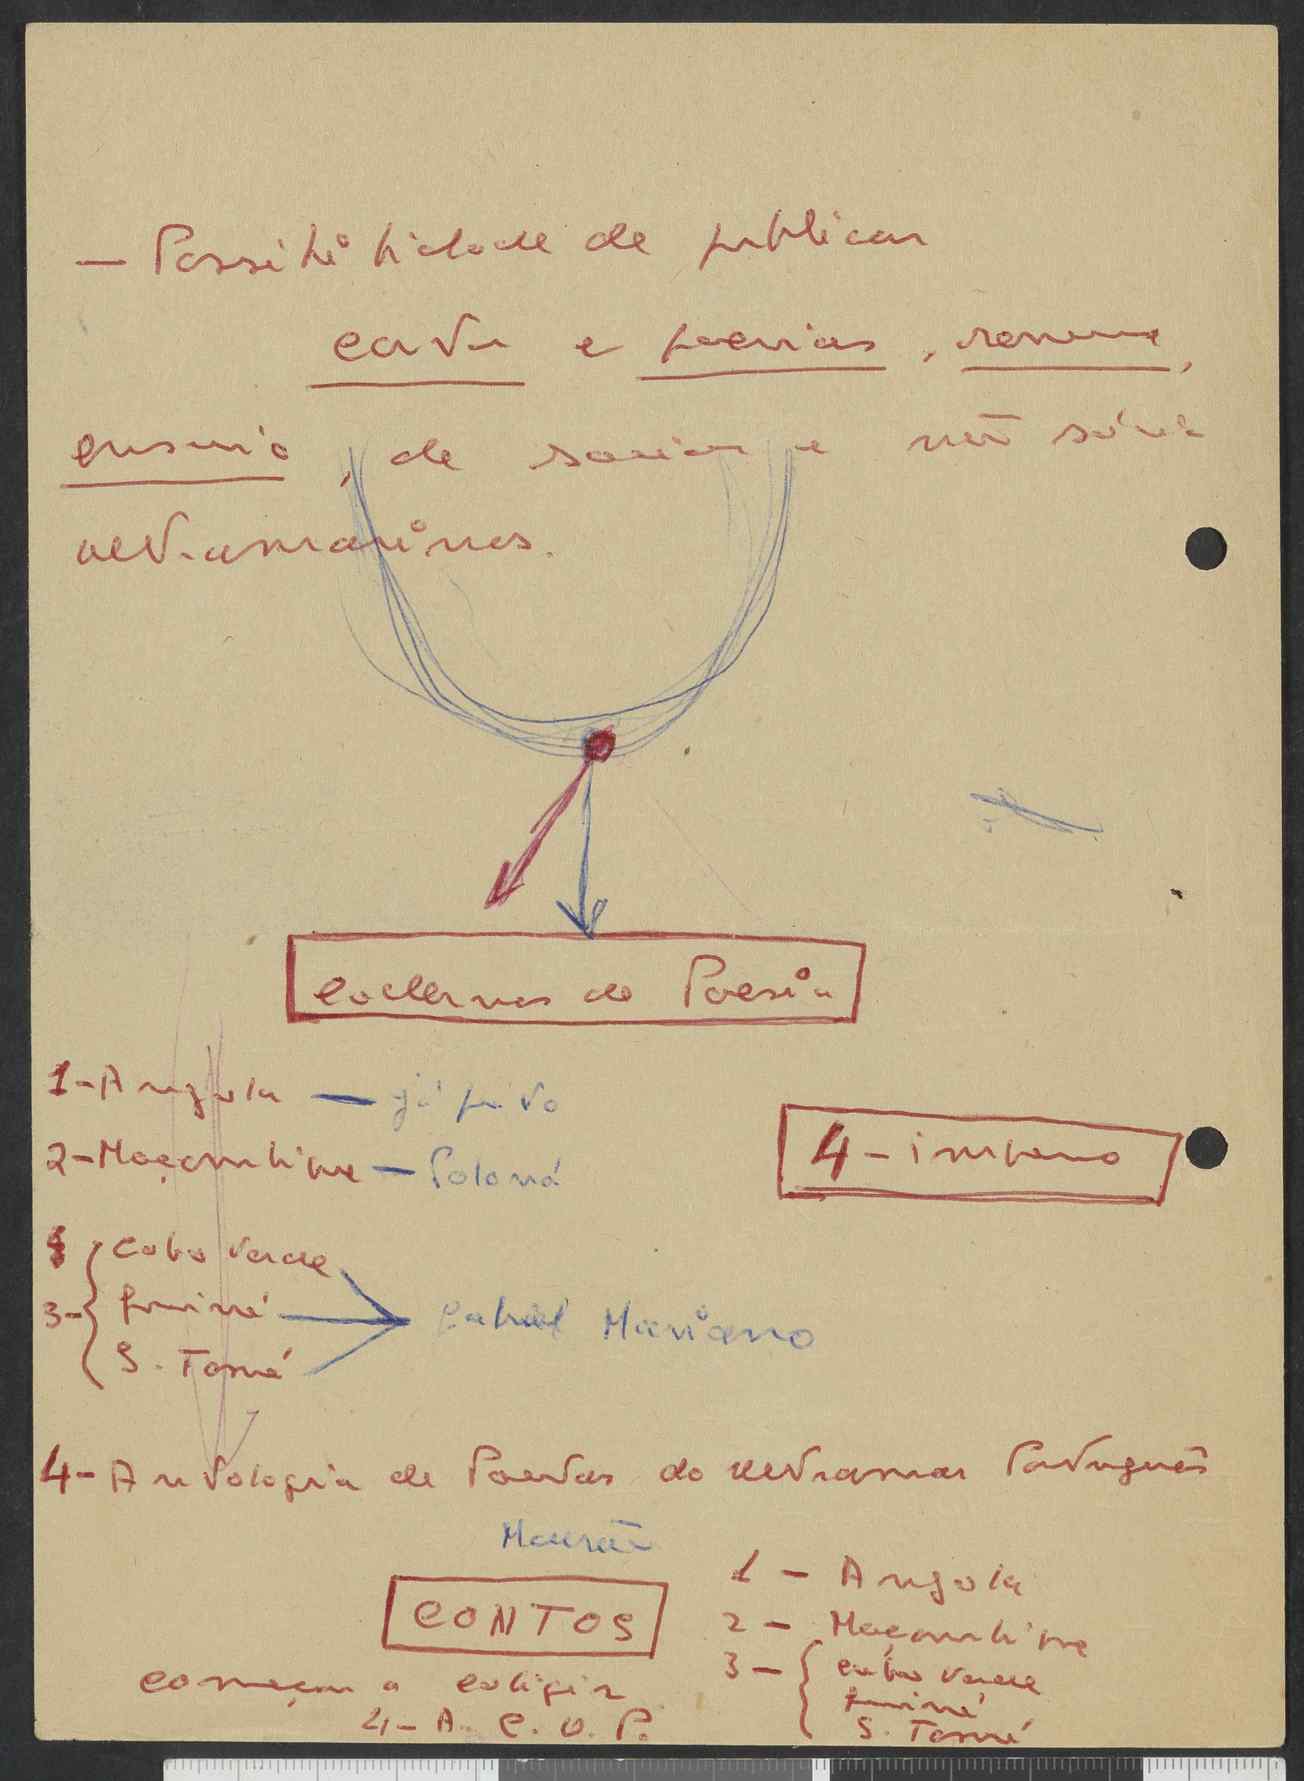 — Possibilidade de publicar
conto e poesias, romance,
ensaio, de sócios e não sócios
ultramarinos.
Cadernos de Poesia
1 - Angola — já pronto
2 - Moçambique — Polanah
4 - império
3 - { Cabo Verde
Guiné
S. Tomé
Gabriel Mariano
4 - Antologia de Poetas do Ultramar Português
Mourão
CONTOS
começar a coligir
4 - A. C. U. P.
1 - Angola
2 - Moçambique
3 - { Cabo Verde
Guiné
S. Tomé